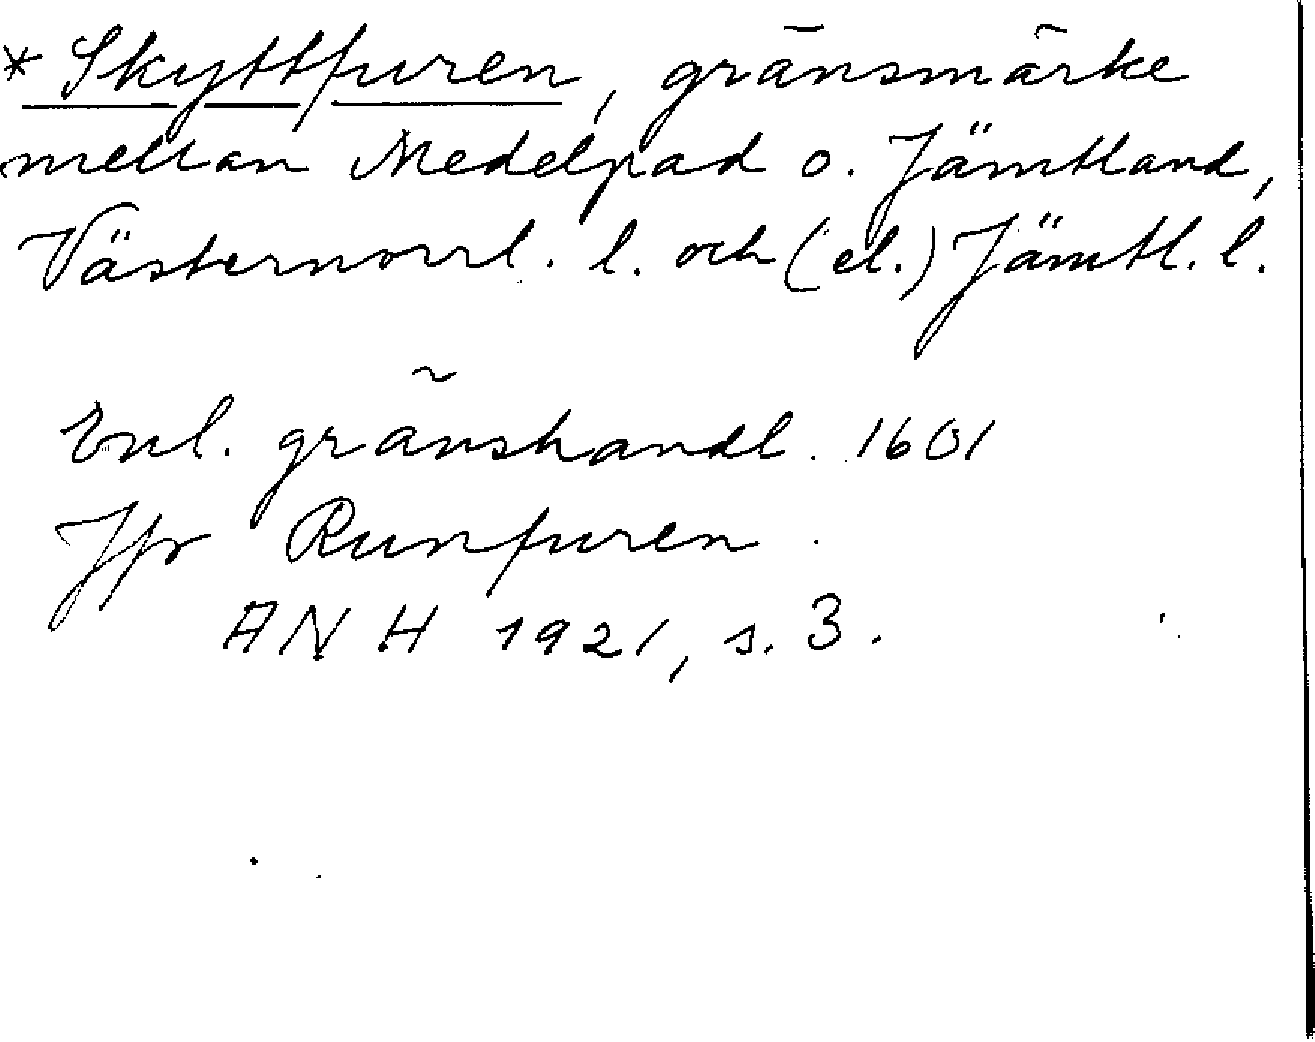 * Skyttfuren, gränsmärke
mellan Medelpad o. Jämtland,
Västernorrl. l. och (el.) Jämtl. l.
Enl. gränshandl. 1601
Jfr Runfuren.
ANH 1921, s. 3.